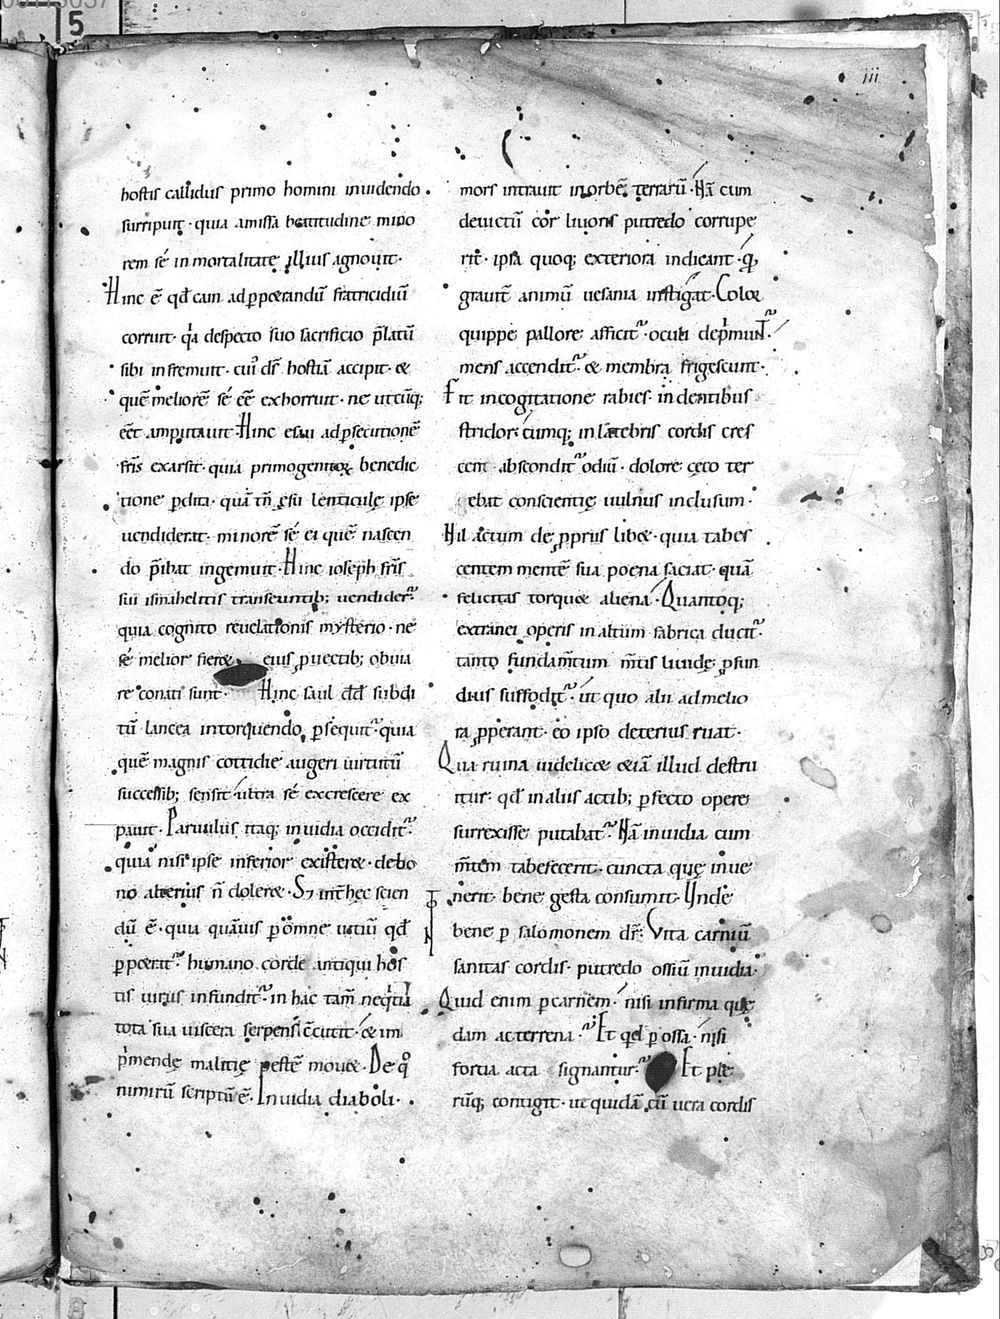 iii
hostis callidus primo homini inuidendo.
surripuit· quia amissa beatitudine mino
rem sé in mortalitate illius agnouit·
Hinc ē qđ cain ad ꝑpetrandū fratricidiū
corruit· qa despecto suo sacrificio p̄latū
sibi infremuit· cui' ds̄ hostiā accipit· &
quē meliorē sé eē exhorruit· ne utcūq;
eēt amputauit· Hinc esau ad ꝑsecutionē
fr̄is exarsit· quia primogenitoꝝ benedic
tione ꝑdita· quā tn̄ ęsu lenticulę ipse
uendiderat· minorē sé ei quē nascen
do p̄ibat ingemuit· Hinc ioseph fr̄s
sui ismahelitis transeuntib; uendider̄·
quia cognito reuelationis mysterio· ne
sé melior fieret eius ꝓuectib; obuia
re conati sunt· Hinc saul dd̄ subdi
tū lancea intorquendo ꝑsequit᷑· quia
quē magnis cottidie augeri uirtutū
successib; sensit· ultra sé excrescere ex
pauit· Paruulus itaq; inuidia occidit᷑·
quia nisi ipse inferior existeret· de bo
no alterius n̄ doleret· S; int̄ hęc scien
dū ē· quia quāuis ꝑ omne uitiū qđ
ꝑpetrat᷑· humano corde antiqui hos
tis uirus infundit᷑· in hac tam̄ neqtia
tota sua uiscera serpens c̄cutit· & im
p̄mendę malitię pestē mouet· De qo
nimirū scriptū ē· Inuidia diaboli·
mors intrauit in orbē terrarū· Nā cum
deuictū cor liuoris putredo corrupe
rit· ipsa quoq; exteriora indicant· q̄
grauit̄ animū uesania instigat· Color
quippe pallore afficit᷑· oculi depmunt᷑·
mens accendit᷑· & membra frigescunt·
Fit in cogitatione rabies· in dentibus
stridor· cumq; in latebris cordis cres
cens abscondit᷑ odiū· dolore cęco ter
ebat conscientię uulnus inclusum·
Nil lętum de ꝓpriis libet· quia tabes
centem mentē sua poena sauciat· quā
felicitas torquet aliena· Quantoq;
extranei operis in altum fabrica ducit᷑·
tanto fundam̄tum m̄tis liuidę ꝓfun
dius suffodit᷑· ut quo alii ad melio
ra ꝓperant· eo ipso deterius ruat·
Qua ruina uidelicet etiā illud destru
itur· qđ in aliis actib; ꝑfecto opere
surrexisse putabat᷑· Nā inuidia cum
m̄tem tabefecerit· cuncta quę inue
nerit· bene gesta consumit· Unde
bene ꝑ salomonem dr̄: Vita carniū
sanitas cordis· putredo ossiū inuidia·
Quid enim ꝑ carnem· nisi infirma quę
dam ac terrena᷑· Et qđ ꝑ ossa· nisi
fortia acta signantur᷑· Et ple
rūq; contigit· ut quidā cū uera cordis